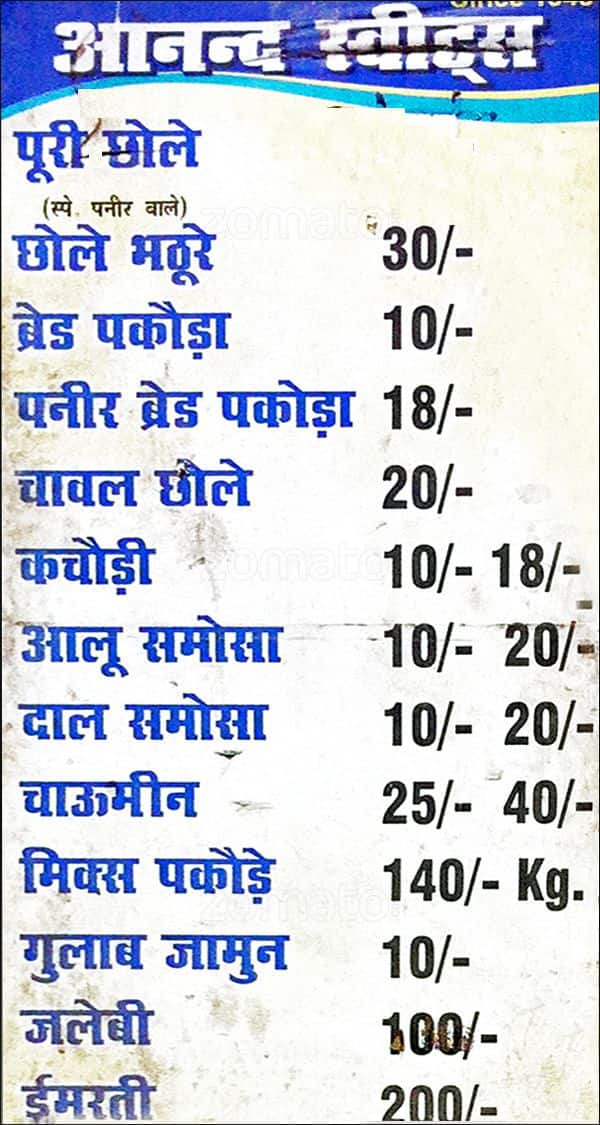 आनन्द स्वीट्स
पूरी छोले
(स्पे. पनीर वाले)
छोले भठूरे 30/-
ब्रेड पकौड़ा 10/-
पनीर ब्रेड पकोड़ा 18/-
चावल छोले 20/-
कचौड़ी 10/- 18/-
आलू समोसा 10/- 20/-
दाल समोसा 10/- 20/-
चाऊमीन 25/- 40/-
मिक्स पकौड़े 140/- Kg.
गुलाब जामुन 10/-
जलेबी 100/-
ईमरती 200/-
zomato
zomato
zomato